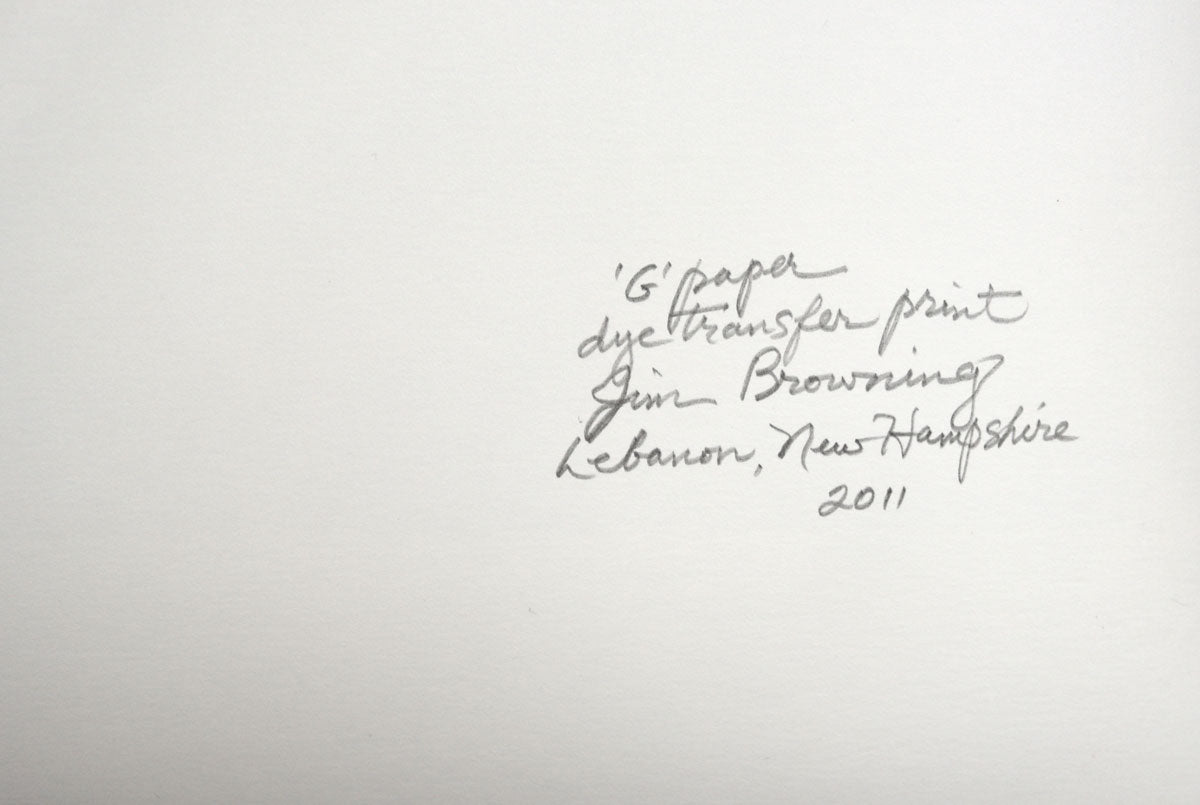 'G' paper
dye transfer print
Jim Browning
Lebanon, New Hampshire
2011